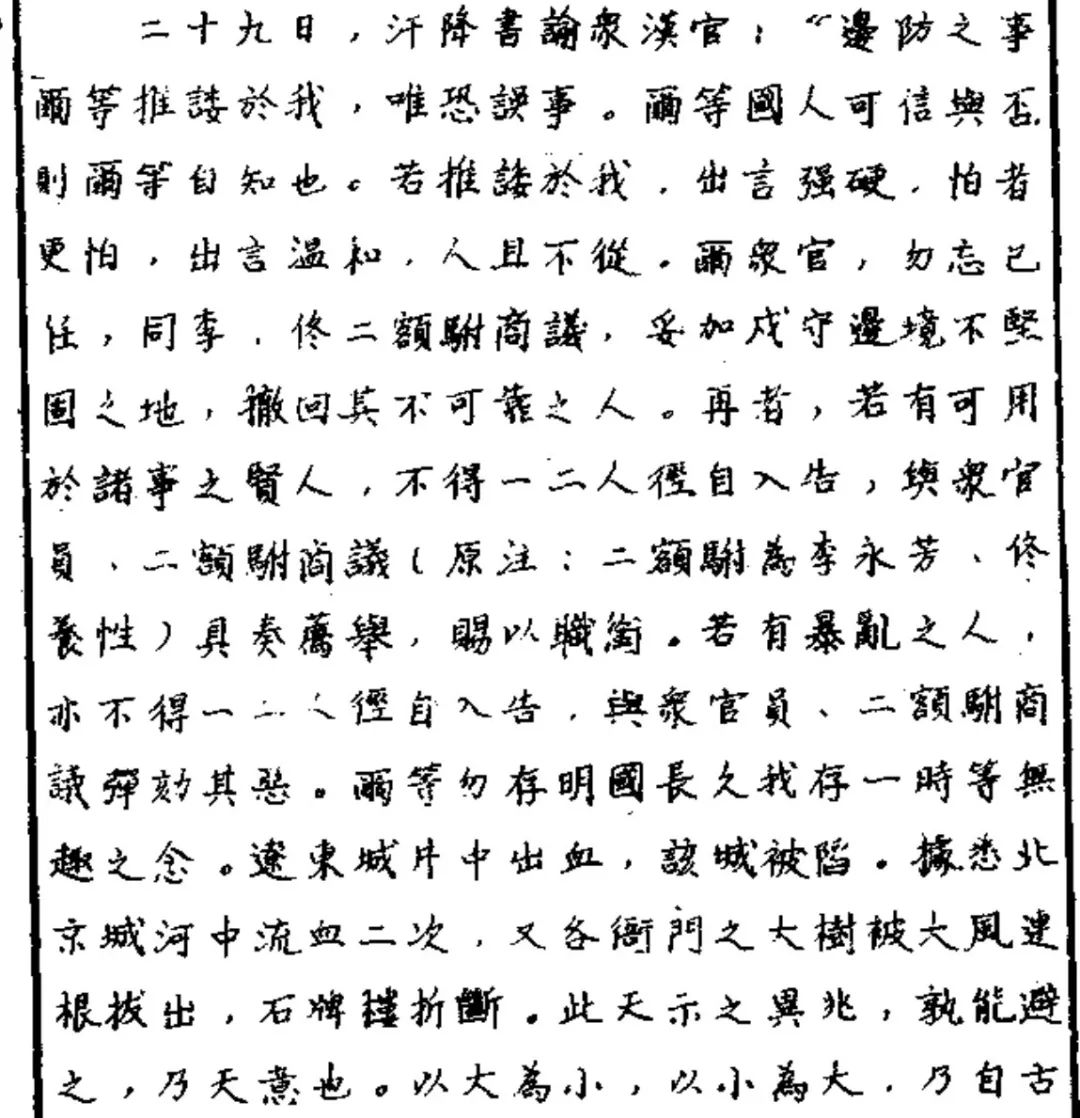 二十九日，汗降書諭衆漢官："邊防之事
爾等推諉於我，唯恐誤事。爾等國人可信與否
則爾等自知也。若推諉於我，出言强硬，怕者
更怕，出言溫和，人且不從。爾衆官，勿忘己
任，同李、佟二額駙商議，妥加戍守邊境不堅
固之地，撤回其不可靠之人。再者，若有可用
於諸事之賢人，不得一二人徑自入告，與衆官
員、二額駙商議（原注：二額駙為李永芳、佟
養性）具奏薦舉，賜以職銜。若有暴亂之人，
亦不得一二人徑自入告，與衆官員、二額駙商
議彈劾其惡。爾等勿存明國長久我存一時等無
趣之念。遼東城片中出血，該城被陷。據悉北
京城河中流血二次，又各衙門之大樹被大風連
根拔出，石牌樓折斷。此天示之異兆，孰能避
之，乃天意也。以大為小，以小為大，乃自古